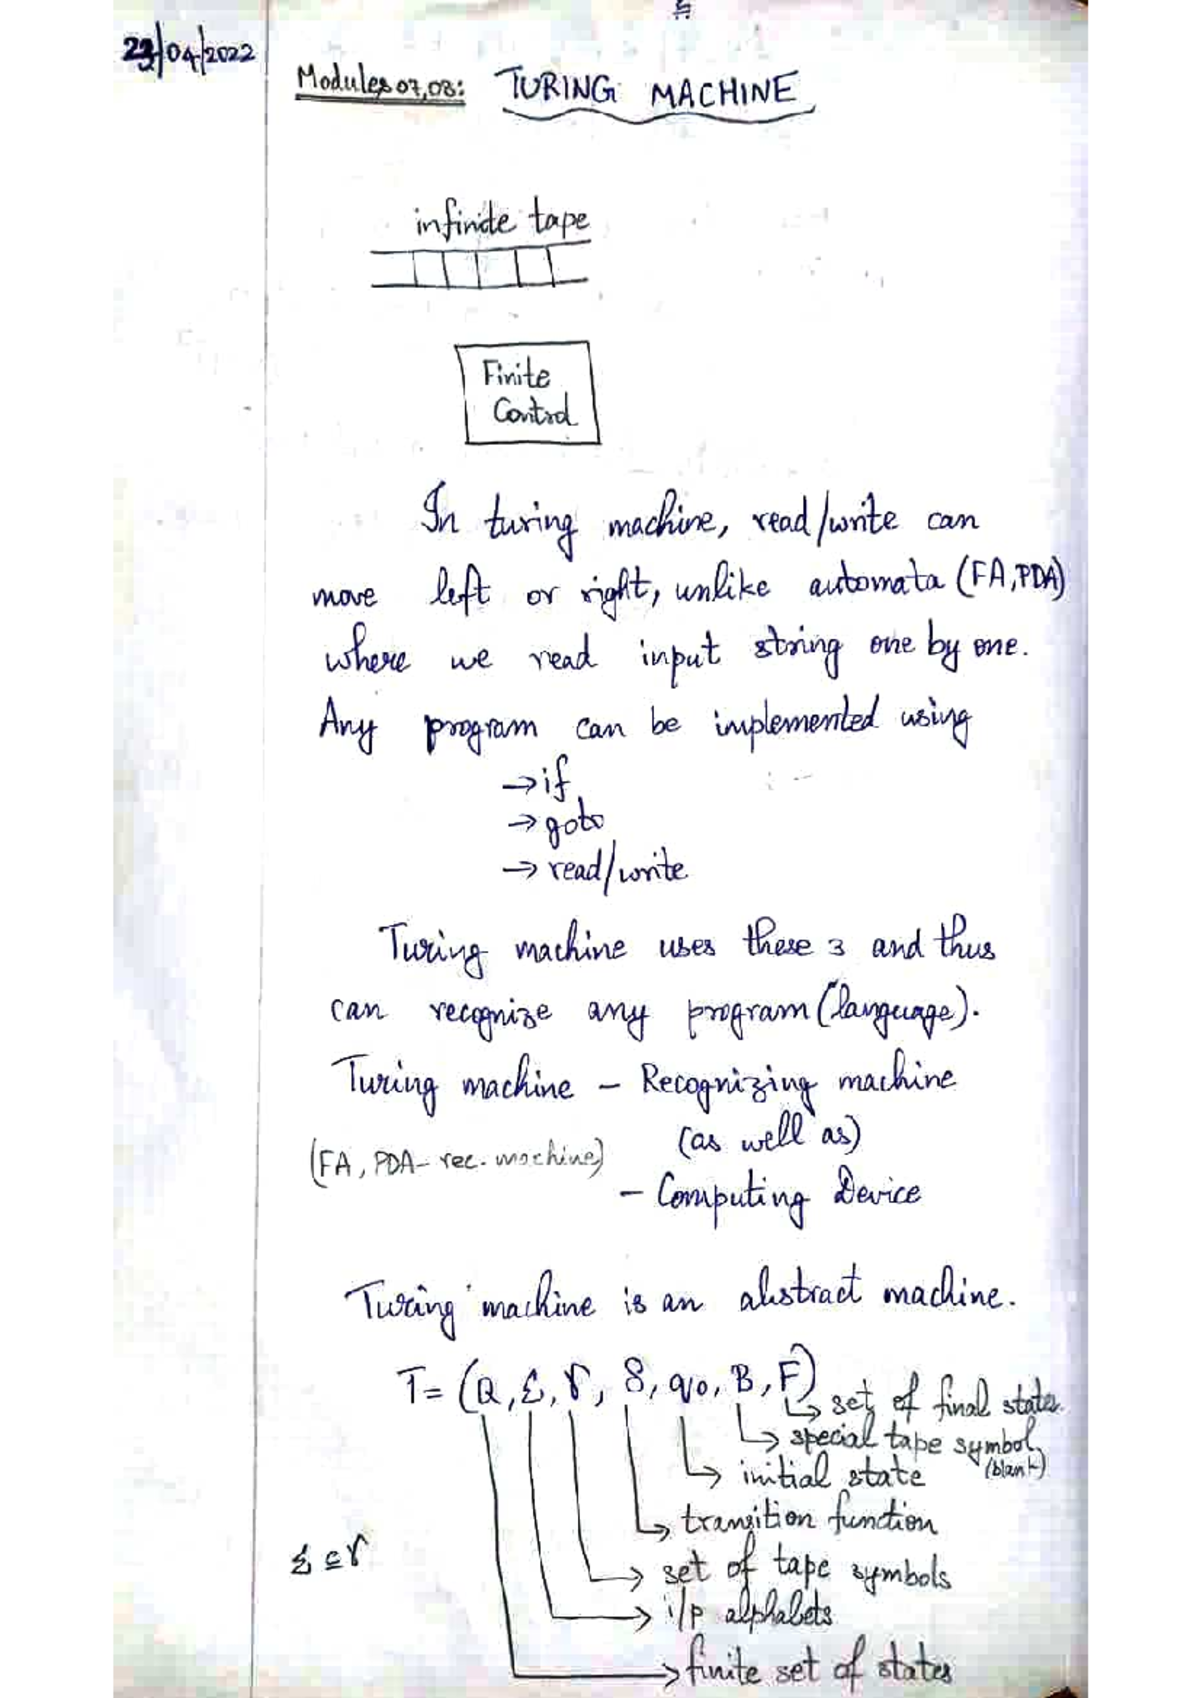 23/04/2022
Modules 07,08: TURING MACHINE
infinite tape
Finite
Control
In turing machine, read/write can
move left or right, unlike automata (FA,PDA)
where we read input string one by one.
Any program can be implemented using
→ if
→ goto
→ read/write
Turing machine uses these 3 and thus
can recognize any program (language).
Turing machine – Recognizing machine
(as well as)
(FA, PDA – rec. machine)
– Computing Device
Turing machine is an abstract machine.
T = (Q, Σ, Γ, δ, q0, B, F)
→ set of final states.
→ special tape symbol
(blank)
→ initial state
→ transition function
Σ ⊆ Γ
→ set of tape symbols
→ i/p alphabets
→ finite set of states